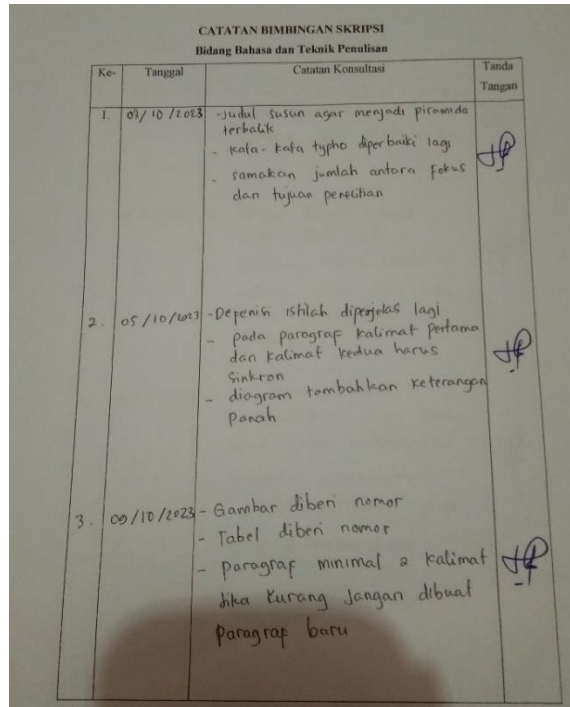 CATATAN BIMBINGAN SKRIPSI
Bidang Bahasa dan Teknik Penulisan
Ke- Tanggal Catatan Konsultasi Tanda
Tangan
1. /10/2023 -Judul susun agar menjadi piramida
terbalik
- Kata-kata typho diperbaiki lagi
- samakan jumlah antara fokus
dan tujuan penelitian
2. 05/10/2023 -Depenisi istilah diperjelas lagi
- pada paragraf kalimat pertama
dan kalimat kedua harus
sinkron
- diagram tambahkan keterangan
Panah
3. 09/10/2023 - Gambar diberi nomor
- Tabel diberi nomor
- paragraf minimal 2 kalimat
jika kurang jangan dibuat
paragraf baru